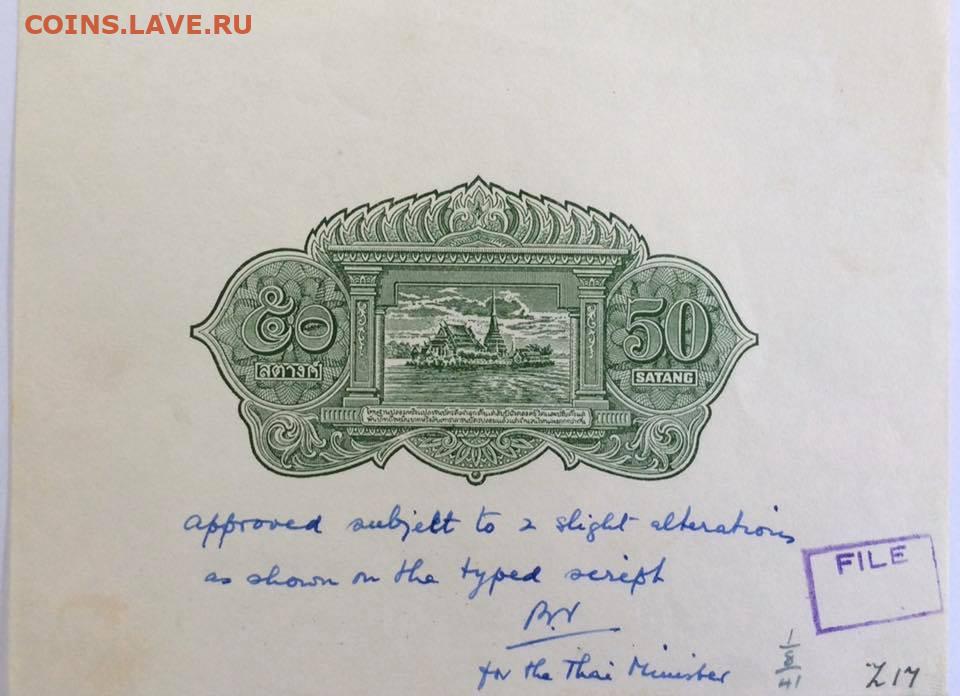 COINS.LAVE.RU
๕๐
สตางค์
50
SATANG
approved subject to 2 slight alterations
as shown on the typed script
for the Thai Minister
FILE
41
Z17